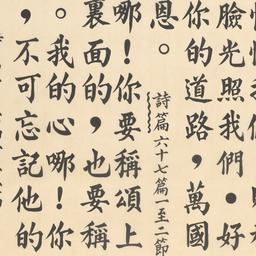 臉光照我們。好
你的道路,萬國
恩。
詩篇六十七篇一至二節
哪!你要稱頌上
裏面的,也要稱
。我的心哪!你
,不可忘記他的